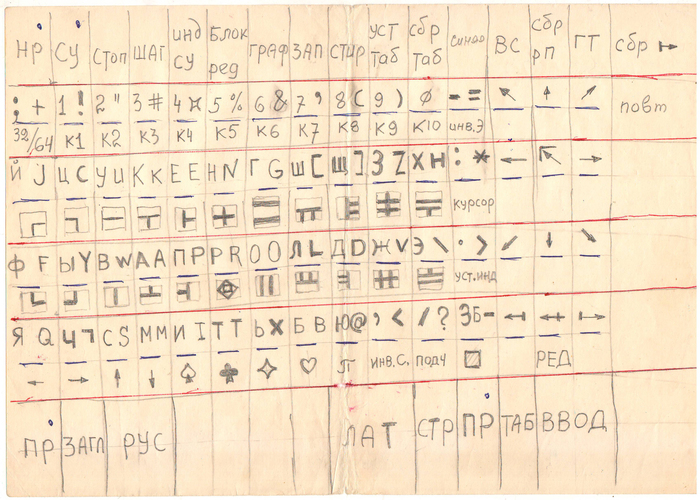 НР СУ СТОП ШАГ инд СУ Блок ред ГРАФ ЗАП СТИР уст таб сбр таб ВС сбр рп ГТ сбр ↦
; + 1 ! 2 " 3 # 4 ¤ 5 % 6 & 7 ' 8 ( 9 ) ∅ - = ↖ ↑ ↗ повт
32/64 К1 К2 К3 К4 К5 К6 К7 К8 К9 К10 инв.Э
Й J Ц C У U К K Е E Н N Г G Ш [ Щ ] З Z Х H : * ← ↖ →
курсор
Ф F Ы Y В W А A П P Р R О O Л L Д D Ж V Э \ . > ↙ ↓ ↘
уст.инд
Я Q Ч ¬ С S М M И I Т T Ь X Б B Ю @ , < / ? ЗБ -
← → ↑ ↓ ♠ ♣ ♡ П инв.С. ПОДЧ РЕД
ПР ЗАГЛ РУС ЛАТ СТР ПР ТАБ ВВОД